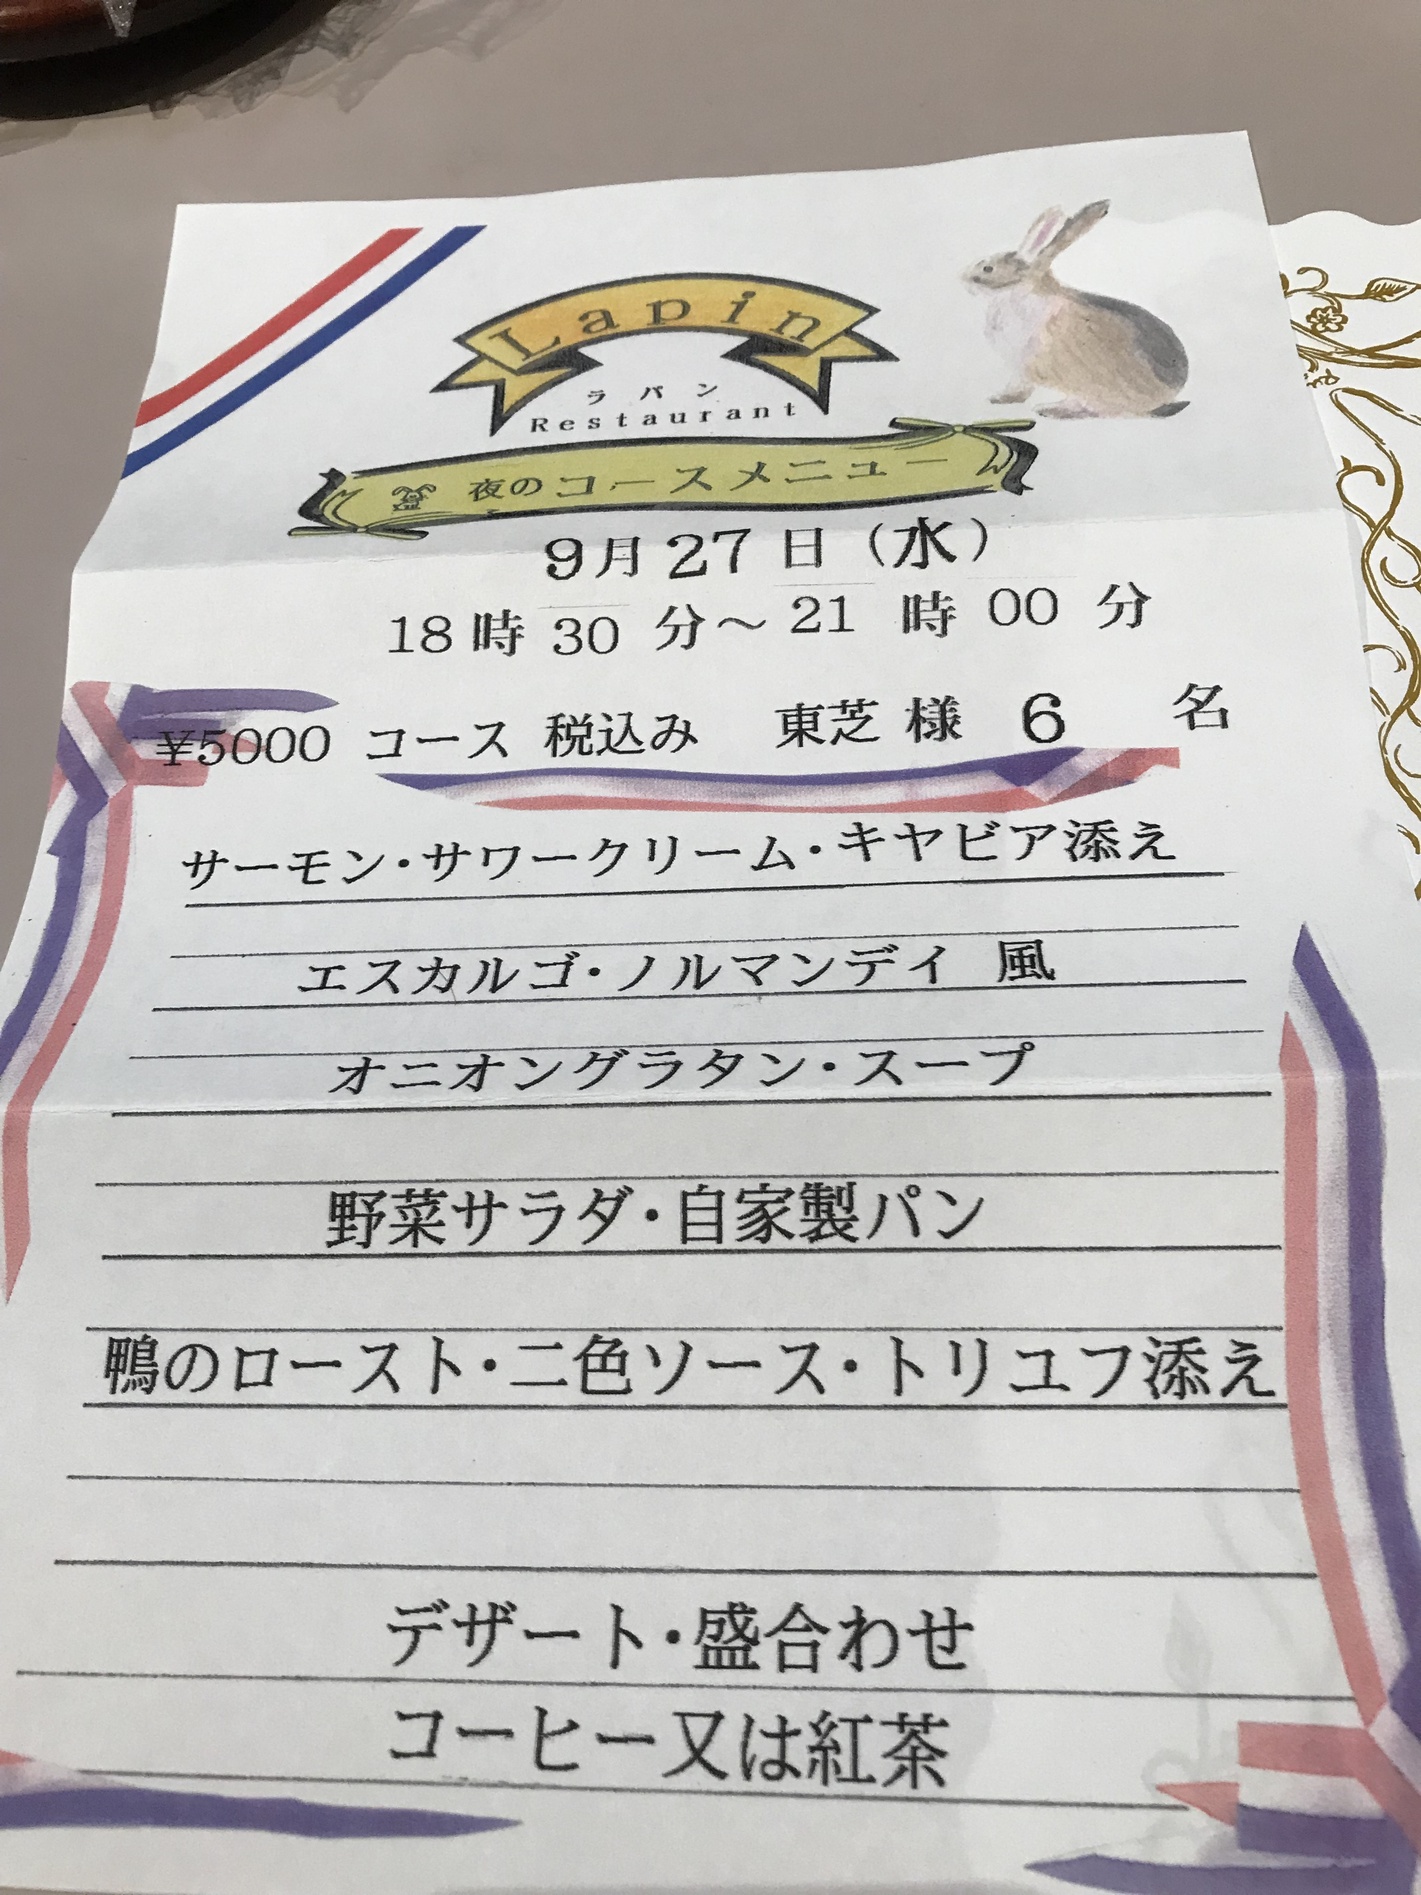 Lapin
ラパン
Restaurant
夜のコースメニュー
9月27日（水）
18時30分～21時00分
¥5000 コース 税込み 東芝様 6 名
サーモン・サワークリーム・キヤビア添え
エスカルゴ・ノルマンデイ 風
オニオングラタン・スープ
野菜サラダ・自家製パン
鴨のロースト・二色ソース・トリユフ添え
デザート・盛合わせ
コーヒー又は紅茶